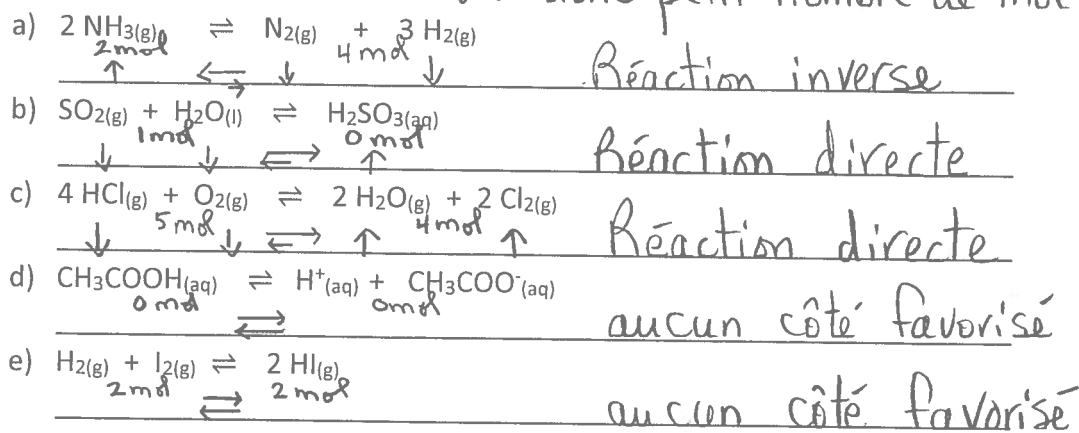 donc petit nombre de mol
a) 2 NH₃(g) ⇌ N₂(g) + 3 H₂(g)
2 mol 4 mol
↑ ⇆ ↓ ↓ Réaction inverse
b) SO₂(g) + H₂O(l) ⇌ H₂SO₃(aq)
1 mol 0 mol
↓ ↓ ⇄ ↑ Réaction directe
c) 4 HCl(g) + O₂(g) ⇌ 2 H₂O(g) + 2 Cl₂(g)
5 mol 4 mol
↓ ↓ ⇄ ↑ ↑ Réaction directe
d) CH₃COOH(aq) ⇌ H⁺(aq) + CH₃COO⁻(aq)
0 mol 0 mol
⇄ aucun côté favorisé
e) H₂(g) + I₂(g) ⇌ 2 HI(g)
2 mol ⇄ 2 mol
aucun côté favorisé